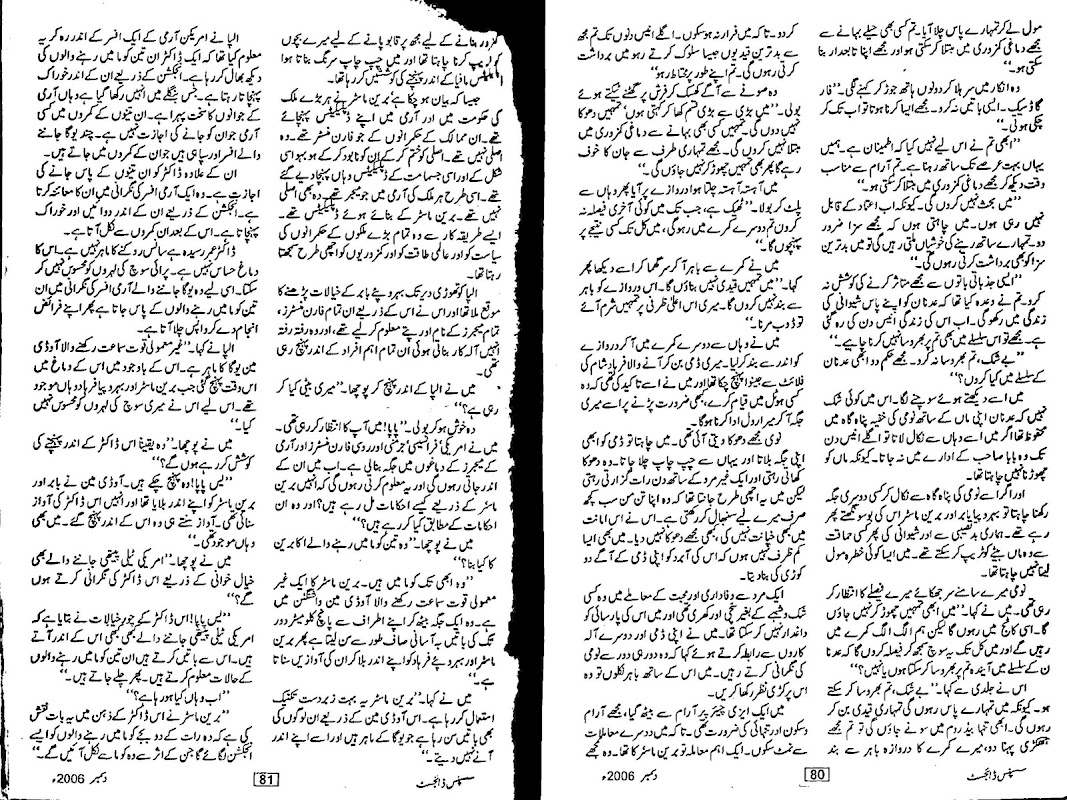 مول لے کر تمہارے پاس چلا آیا۔ تم کسی بھی حیلے بہانے سے
مجھے دماغی کمزوری میں مبتلا کر سکتی ہو اور مجھے اپنا تابعدار بنا
سکتی ہو۔‘‘
وہ انکار میں سر ہلا کر دونوں ہاتھ جوڑ کر کہنے لگی۔ ’’فار
گاڈ سیک۔ ایسی باتیں نہ کرو۔ مجھے ایسا کرنا ہوتا تو اب تک کر
چکی ہوتی۔‘‘
’’ابھی تم نے اس لیے نہیں کیا کہ اطمینان ہے۔ ہمیں
یہاں بہت عرصے تک ساتھ رہنا ہے۔ تم آرام سے مناسب
وقت دیکھ کر مجھے دماغی کمزوری میں مبتلا کر سکتی ہو۔‘‘
’’میں بحث نہیں کروں گی۔ کیونکہ اب اعتماد کے قابل
نہیں رہی ہوں۔ میں چاہتی ہوں کہ مجھے سزا ضرور
دو۔ تمہارے ساتھ رہنے کی خوشیاں ملتی رہیں گی تو میں بدترین
سزا کو بھی برداشت کرتی رہوں گی۔‘‘
’’ایسی جذباتی باتوں سے مجھے متاثر کرنے کی کوشش نہ
کرو۔ تم نے وعدہ کیا تھا کہ عدنان کو اپنے پاس شیوانی کی
زندگی میں رکھو گی۔ اب اس کی زندگی انیس دن کی رہ گئی
ہے۔ مجھے تو اس سلسلے میں بھی تم پر بھروسا نہیں کرنا چاہیے۔‘‘
’’بے شک، تم بھروسا نہ کرو۔ مجھے حکم دو ابھی عدنان
کے سلسلے میں کیا کروں؟‘‘
میں اسے دیکھتے ہوئے سوچنے لگا۔ اس میں کوئی شک
نہیں کہ عدنان اپنی ماں کے ساتھ نومی کی خفیہ پناہ گاہ میں
محفوظ تھا اگر میں اسے وہاں سے نکال لاتا تو اگلے انیس دن
تک وہ بابا صاحب کے ادارے میں نہ جاتا۔ کیونکہ ماں کو
چھوڑنا نہیں چاہتا تھا۔
اور اگر اسے نومی کی پناہ گاہ سے نکال کر کسی دوسری جگہ
رکھنا چاہتا تو بہروپیا بابر اور برین ماسٹر اس کی بو سونگھتے پھر
رہے تھے۔ ہماری بدنصیبی سے اور شیوانی کی پھر کسی حماقت
سے وہ ماں بیٹے کو ٹریپ کر سکتے تھے۔ میں ایسا کوئی خطرہ مول
لینا نہیں چاہتا تھا۔
نومی میرے سامنے سر جھکائے میرے فیصلے کا انتظار کر
رہی تھی۔ میں نے کہا۔ ’’میں ابھی تمہیں چھوڑ کر نہیں جاؤں
گا۔ اسی کاٹج میں رہوں گا لیکن ہم الگ الگ کمرے میں
رہیں گے اور میں کل تک یہ سوچ سمجھ کر فیصلہ کروں گا کہ عدنا
ن کے سلسلے میں آیندہ تم پر بھروسا کر سکتا ہوں یا نہیں؟‘‘
اس نے جلدی سے کہا۔ ’’بے شک، تم بھروسا کر سکتے
ہو۔ کیونکہ میں تمہارے پاس رہوں گی تمہاری قیدی بن کر
رہوں گی۔ ابھی تنہا بیڈ روم میں سونے جاؤں گی تو تم مجھے
ہتھکڑی پہنا دو، میرے کمرے کا دروازہ باہر سے بند
کر دو۔ تاکہ میں فرار نہ ہو سکوں۔ اگلے انیس دنوں تک تم مجھ
سے بدترین قیدیوں جیسا سلوک کرتے رہو میں برداشت
کرتی رہوں گی۔ تم اپنے طور پر محتاط رہو۔‘‘
وہ صوفے سے آگے کھسک کر فرش پر گھٹنے ٹیکتے ہوئے
بولی۔ ’’میں بڑی سے بڑی قسم کھا کر کہتی ہوں‘ تمہیں دھوکا
نہیں دوں گی۔ تمہیں کسی بھی بہانے سے دماغی کمزوری میں
مبتلا نہیں کروں گی۔ مجھے تمہاری طرف سے جان کا خوف
رہے گا پھر بھی تمہیں چھوڑ کر نہیں جاؤں گی۔‘‘
میں آہستہ آہستہ چلتا ہوا دروازے پر آیا پھر وہاں سے
پلٹ کر بولا۔ ’’ٹھیک ہے، جب تک میں کوئی آخری فیصلہ نہ
کروں تم دوسرے کمرے میں رہو گی، میں کل تک کسی نتیجے پر
پہنچوں گا۔‘‘
میں نے کمرے سے باہر آ کر سر گھما کر اسے دیکھا پھر
کہا۔ ’’میں تمہیں قیدی نہیں بناؤں گا۔ اس دروازے کو باہر
سے بند نہیں کروں گا۔ میری اس اعلیٰ ظرفی پر تمہیں شرم آئے
تو ڈوب مرنا۔‘‘
میں نے وہاں سے دوسرے کمرے میں آ کر دروازے
کو اندر سے بند کر لیا۔ میری ڈمی بن کر آنے والا فرہاد شام کی
فلائٹ سے جنیوا پہنچ چکا تھا اور میں نے اسے تاکید کی تھی کہ وہ
کسی ہوٹل میں قیام کرے، بھی ضرورت پڑنے پر اسے میری
جگہ آ کر میرا رول ادا کرنا ہو گا۔
نومی مجھے دھوکا دیتی آئی تھی۔ میں چاہتا تو ڈمی کو ابھی
اپنی جگہ بلاتا اور یہاں سے چپ چاپ چلا جاتا۔ وہ دھوکا
کھاتی رہتی اور ایک غیر مرد کے ساتھ دن رات گزارتی رہتی
لیکن میں یہ اچھی طرح جانتا تھا کہ وہ اپنا تن من سب کچھ
صرف میرے لیے سنبھال کر رکھتی ہے۔ اس نے اس امانت
میں بھی خیانت نہیں کی، بھی مجھے دھوکا نہیں دیا۔ میں بھی ایسا
کم ظرف نہیں ہوں کہ اس کی آبرو کو اپنی ڈمی کے آگے دو
کوڑی کی بنا دیتا۔
ایک مرد سے وفاداری اور محبت کے معاملے میں وہ کسی
شک و شبہے کے بغیر سچی اور کھری تھی اور میں اس کی پارسائی کو
داغدار نہیں کر سکتا تھا۔ میں نے اپنی ڈمی اور دوسرے آلہ
کاروں سے رابطہ کرتے ہوئے کہا کہ وہ دور ہی دور سے نومی
کی نگرانی کرتے رہیں۔ میں اس کے ساتھ باہر نکلوں تو وہ
اس پر کڑی نظر رکھا کریں۔
میں ایک ایزی چیئر پر آرام سے بیٹھ گیا، مجھے آرام
و سکون اور تنہائی کی ضرورت تھی۔ تاکہ میں دوسرے معاملات
سے نمٹ سکوں۔ ایک اہم معاملہ تو برین ماسٹر کا تھا۔ وہ مجھے
سسپنس ڈائجسٹ 80 دسمبر 2006ء
کمزور بنانے کے لیے مجھ پر قابو پانے کے لیے میرے بچوں
کو ٹریپ کرنا چاہتا تھا اور میں چپ چاپ سرنگ بناتا ہوا
ڈپلیکیٹس مافیا کے اندر پہنچنے کی کوششیں کر رہا تھا۔
جیسا کہ بیان ہو چکا ہے‘ برین ماسٹر نے ہر بڑے ملک
کی حکومت میں اور آرمی میں اپنے ڈپلیکیٹس پہنچائے
تھے۔ ان ممالک کے حکمرانوں کے جو فارن منسٹر تھے۔ وہ
اصلی نہیں تھے۔ اصلی کو ختم کر کے ان کو نابود کر کے ہو بہو اسی
شکل کے اور اسی جسامت کے ڈپلیکیٹس وہاں پہنچا دیے گئے
تھے۔ اسی طرح ہر ملک کی آرمی میں جو میجر تھے۔ وہ بھی اصلی
نہیں تھے۔ برین ماسٹر کے بنائے ہوئے ڈپلیکیٹس تھے۔
ایسے طریقہ کار سے وہ تمام بڑے ملکوں کے حکمرانوں کی
سیاست کو اور عالمی طاقت کو اور کمزوریوں کو اچھی طرح سمجھتا
رہتا تھا۔
الپا کو تھوڑی دیر تک بہروپیے بابر کے خیالات پڑھنے کا
موقع ملا تھا اور اس نے اس کے ذریعے ان تمام فارن منسٹرز،
تمام میجرز کے نام اور پتے معلوم کر لیے تھے، اور وہ رفتہ رفتہ
انہیں آلہ کار بناتی ہوئی ان تمام اہم افراد کے اندر پہنچ رہی
تھی۔
میں نے الپا کے اندر پہنچ کر پوچھا۔ ’’میری بیٹی کیا کر
رہی ہے؟‘‘
وہ خوش ہو کر بولی۔ ’’پاپا! میں آپ کا انتظار کر رہی تھی۔
میں نے امریکی‘ فرانسیسی‘ جرمنی اور روسی فارن منسٹرز اور آرمی
کے میجرز کے دماغوں میں جگہ بنا لی ہے۔ اب میں ان کے
اندر جاتی رہوں گی اور یہ معلوم کرتی رہوں گی کہ انہیں برین
ماسٹر کے ذریعے کیسے احکامات مل رہے ہیں؟ اور وہ ان
احکامات کے مطابق کیا کر رہے ہیں؟‘‘
میں نے پوچھا۔ ’’وہ تین کوما میں رہنے والے اکابرین
کا کیا بنا؟‘‘
’’وہ ابھی تک کوما میں ہیں۔ برین ماسٹر کا ایک غیر
معمولی قوت سماعت رکھنے والا آوڈی مین واشنگٹن میں
ہے۔ وہ ایک جگہ بیٹھ کر اپنے اطراف سے پانچ کلومیٹر دور
تک کی باتیں بہ آسانی صاف طور سے سن لیتا ہے پھر برین
ماسٹر اور بہروپیے فرہاد کو اپنے اندر بلا کر ان کی آوازیں سناتا
ہے۔‘‘
میں نے کہا۔ ’’برین ماسٹر یہ بہت زبردست تکنیک
استعمال کر رہا ہے۔ اس آوڈی مین کے ذریعے ان لوگوں کی
بھی باتیں سن رہا ہے جو یوگا کے ماہر ہیں اور اسے اپنے اندر
آنے نہیں دیتے۔‘‘
الپا نے امریکن آرمی کے ایک افسر کے اندر رہ کر یہ
معلوم کیا تھا کہ ایک ڈاکٹر ان تین کوما میں رہنے والوں کی
دیکھ بھال کر رہا ہے۔ انجکشن کے ذریعے ان کے اندر خوراک
پہنچاتا رہتا ہے۔ جس بنگلے میں انہیں رکھا گیا ہے وہاں آرمی
کے جوانوں کا سخت پہرا ہے۔ ان تینوں کے کمروں میں کسی
آرمی جوان کو جانے کی اجازت نہیں ہے۔ چند یوگا جاننے
والے افسر اور سپاہی ہیں جو ان کے کمروں میں جاتے ہیں۔
ان کے علاوہ ڈاکٹر کو ان تینوں کے پاس جانے کی
اجازت ہے۔ وہ ایک آرمی افسر کی نگرانی میں ان کا معائنہ کرتا
ہے۔ انجکشن کے ذریعے ان کے اندر دوائیں اور خوراک
پہنچاتا ہے۔ اس کے بعد ان کمروں سے نکل آتا ہے۔
ڈاکٹر عمر رسیدہ ہے سانس روکنے کا ماہر نہیں ہے۔ اس کا
دماغ حساس نہیں ہے۔ پرائی سوچ کی لہروں کو محسوس نہیں کر
سکتا۔ اسی لیے وہ یوگا جاننے والے آرمی افسر کی نگرانی میں ان
تین کوما میں رہنے والوں کے پاس جاتا ہے پھر اپنے فرائض
انجام دے کر واپس چلا آتا ہے۔
الپا نے کہا۔ ’’غیر معمولی قوت سماعت رکھنے والا آوڈی
مین یوگا کا ماہر ہے۔ اس کے باوجود میں اس کے دماغ میں
اس وقت پہنچ گئی جب برین ماسٹر اور بہروپیا فرہاد وہاں موجود
تھے۔ اس لیے اس نے میری سوچ کی لہروں کو محسوس نہیں
کیا۔‘‘
میں نے پوچھا۔ ’’وہ یقیناً اس ڈاکٹر کے اندر پہنچنے کی
کوشش کر رہے ہوں گے؟‘‘
’’یس پاپا! وہ پہنچ چکے ہیں۔ آوڈی مین نے بابر اور
برین ماسٹر کو اپنے اندر بلایا تھا اور انہیں اس ڈاکٹر کی آواز
سنائی تھی۔ آواز سنتے ہی وہ اس کے اندر پہنچ گئے۔ میں بھی
وہاں موجود تھی۔‘‘
میں نے پوچھا۔ ’’امریکی ٹیلی پیتھی جاننے والے بھی
خیال خوانی کے ذریعے اس ڈاکٹر کی نگرانی کرتے ہوں
گے؟‘‘
’’یس پاپا! اس ڈاکٹر کے چور خیالات نے بتایا ہے کہ
امریکی ٹیلی پیتھی جاننے والے بھی بھی اس کے اندر آتے
ہیں۔ اس سے باتیں کرتے ہیں ان تین کوما میں رہنے والوں
کے حالات معلوم کرتے ہیں۔ پھر چلے جاتے ہیں۔‘‘
’’اب وہاں کیا ہو رہا ہے؟‘‘
’’برین ماسٹر نے اس ڈاکٹر کے ذہن میں یہ بات نقش
کی ہے کہ وہ رات کے دو بجے کوما میں رہنے والوں کو ایسے
انجکشن لگائے گا جن کے اثر سے وہ کوما سے نکل آئیں گے۔‘‘
سسپنس ڈائجسٹ 81 دسمبر 2006ء